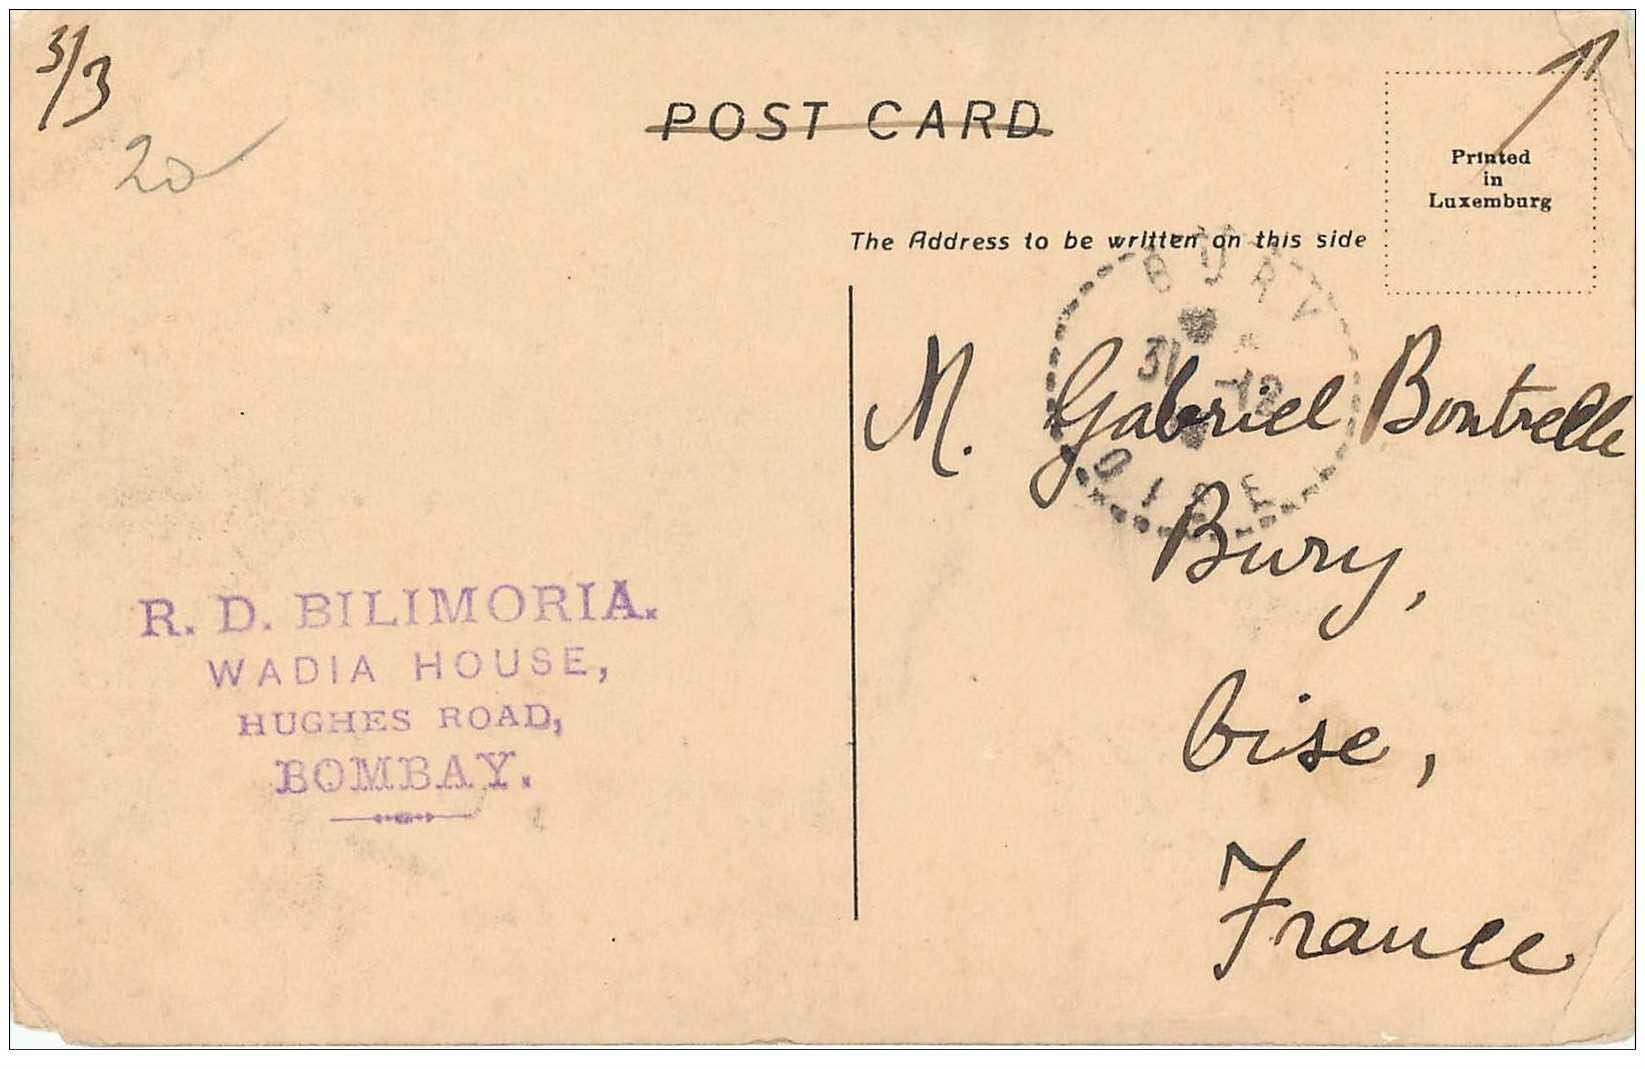 3/3
20
POST CARD
Printed
in
Luxemburg
The Address to be written on this side
BURY
31 -12
OISE
M. Gabriel Bontrelle
Bury,
Oise,
France
R. D. BILIMORIA.
WADIA HOUSE,
HUGHES ROAD,
BOMBAY.